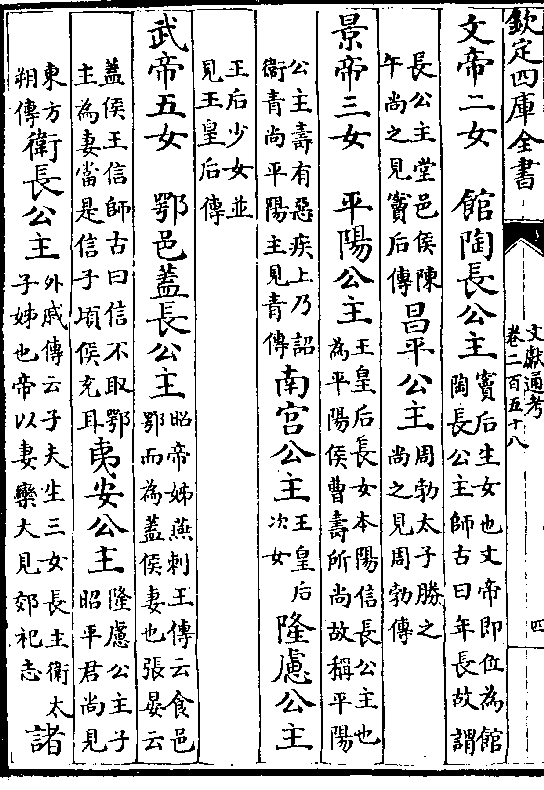 欽定四庫全書
文獻通考
卷二百五十八
四
文帝二女 館陶長公主 竇后生女也文帝即位為館陶長公主師古曰年長故謂
長公主堂邑侯陳午尚之見竇后傳 昌平公主 周勃太子勝之尚之見周勃傳
景帝三女 平陽公主 王皇后長女本陽信長公主也為平陽侯曹壽所尚故稱平陽
公主壽有惡疾上乃詔衛青尚平陽主見青傳 南宫公主 王皇后次女 隆慮公主
王后少女並見王皇后傳
武帝五女 鄂邑蓋長公主 昭帝姊燕刺王傳云食邑鄂而為蓋侯妻也張晏云
蓋侯王信師古曰信不取鄂主為妻當是信子頃侯充耳 夷安公主 隆慮公主子昭平君尚見
東方朔傳 衛長公主 外戚傳云子夫生三女長主衛太子姊也帝以妻欒大見郊祀志 諸